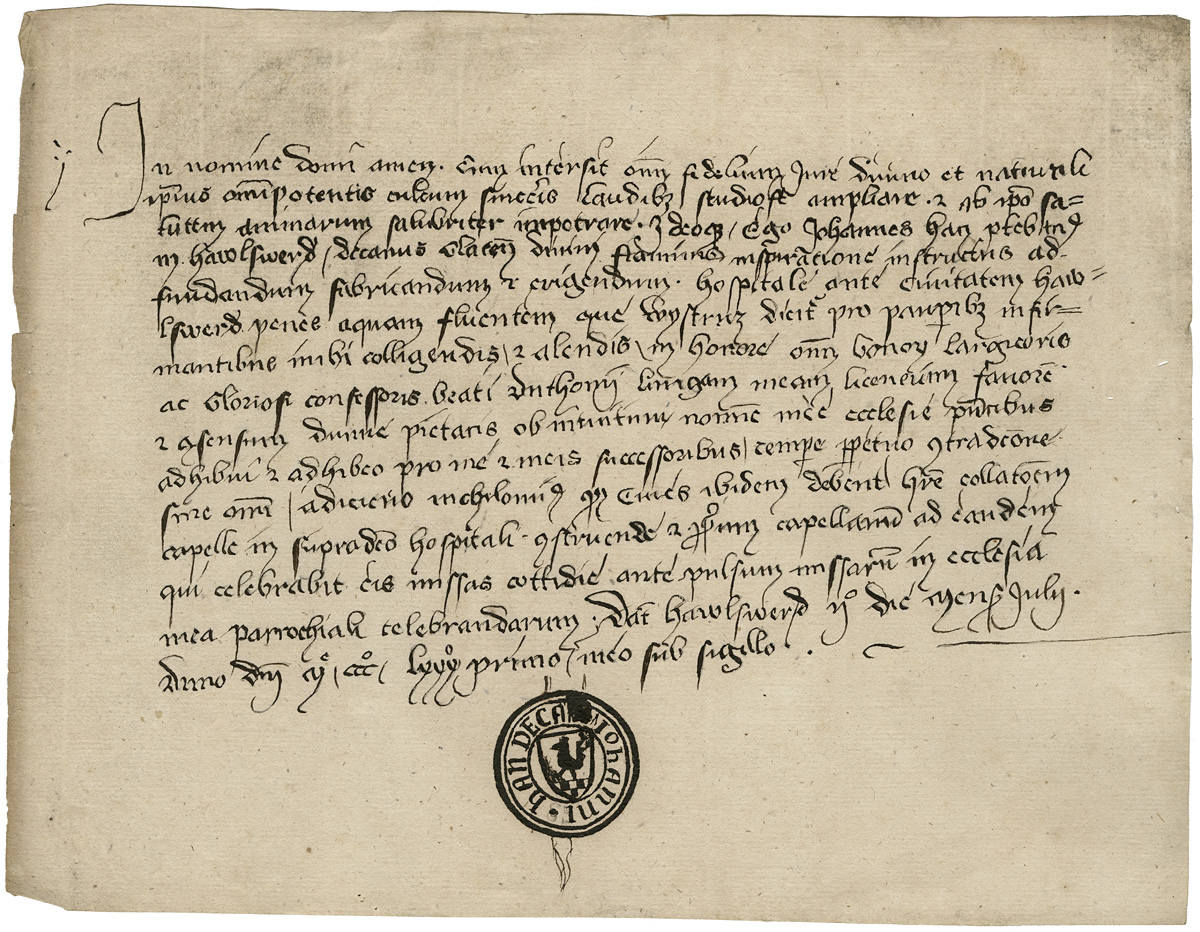 In nomine domi amen. Cum intersit om fidelium Jure diuino et naturali
ipius omnipotentis cultum sinceris laudibz studiose ampliare. et ab ipo sa=
lutem animarum salubriter inpetrare. Ideoqz, Ego Johannes han
in hawlswerd, decanus Glacen diuini flaminis inspiratione instructus ad
fundandum fabricandum et erigendum. hospitale ante Ciuitatem haw=
lswerd penes aquam fluentem que Wystricz dicit pro pauperibz infir=
mantibus inibi colligendis, et alendis, in honore om bonor largitoris
ac Gloriosi confessoris beati Anthonij meam licenciam fauore
et gsensum diuine pietatis ob intuitum nomine mee ecclesie
adhibui et adhibeo pro me et meis successoribus, tempore ppetuo gtradcone
sine omi, adiciens nichilomi Ciues ibidem debent hre collatoem
capelle in supradco hospitali. gstruende et capellanum ad eandem
qui celebrabit eis missas cottidie ante pulsum missaru in ecclesia
mea parrochiali celebrandarum. Dat hawlswerd ijº die Mens Julij.
Anno dni Mº, cccº, lxxxº primo, meo sub sigillo.
hAN DECA JOhANNI